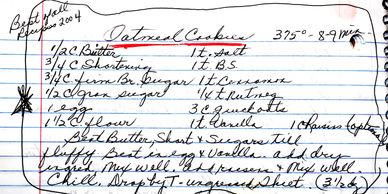 Best of all
Recipes 2004
Oatmeal Cookies 375° - 8-9 min
1/2 C Butter 1 t. Salt
3/4 C Shortening 1 t. B.S.
3/4 C firm Br. Sugar 1 t. Cinnamon
1/2 C gran sugar 1/4 t. Nutmeg
1 egg 3 C quick oats
1 1/2 C flour 1 t. Vanilla 1 C Raisins (optional)
Beat Butter, Short & Sugars till
fluffy. Beat in egg & Vanilla. add dry
ingred. Mix well. add raisins & Mix well.
Chill. Drop by T. ungreased Sheet. (3 1/2 dz)